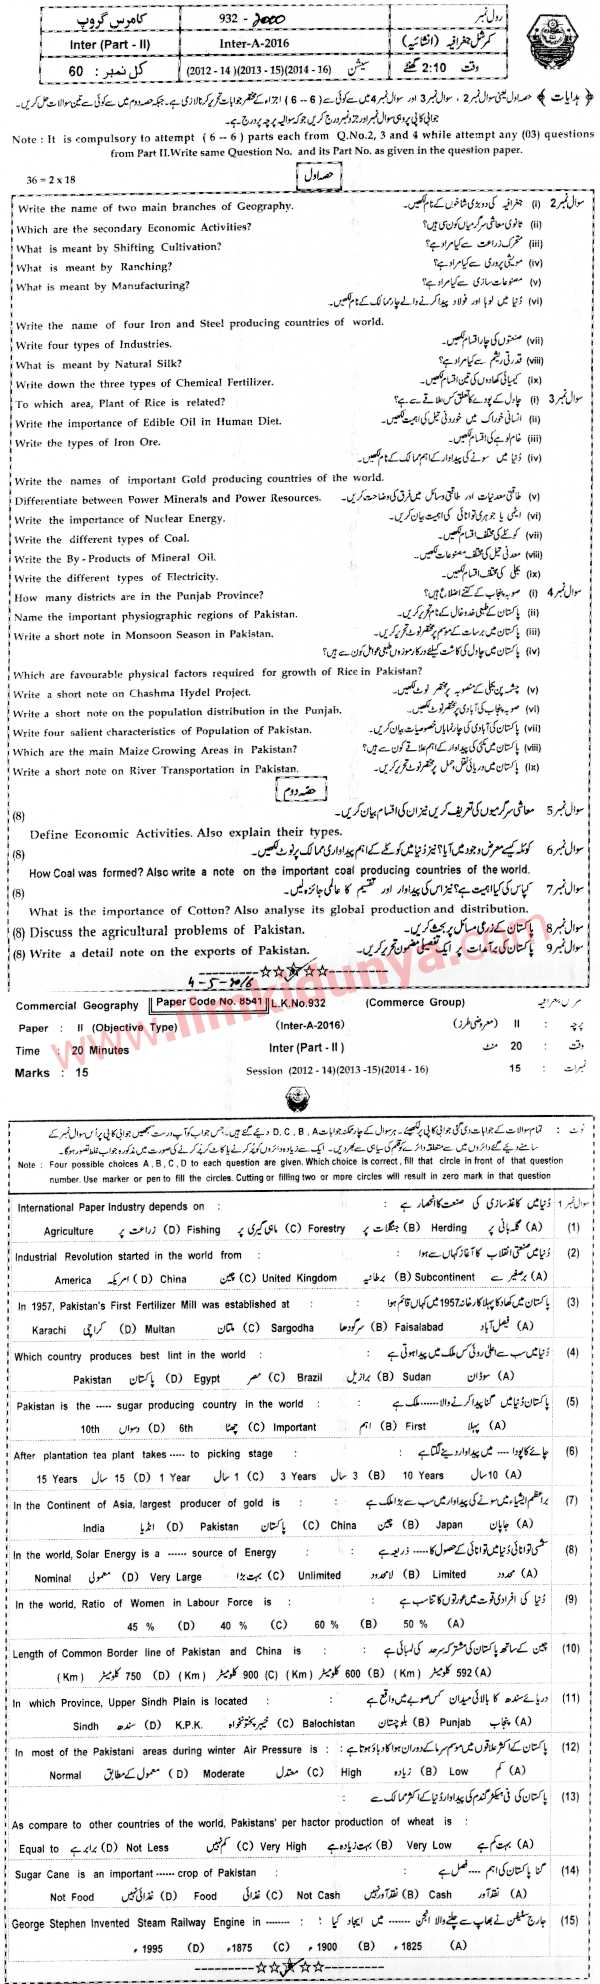 کامرس گروپ 932 - 2000 رول نمبر
Inter (Part - II) Inter-A-2016 کمرشل جغرافیہ (انشائیہ)
کل نمبر : 60 (2012 - 14) (2013 -15) (2014 -16) سیشن وقت 2:10 گھنٹے
﴿ ہدایات ﴾ حصہ اول یعنی سوال نمبر 2 ، سوال نمبر 3 اور سوال نمبر 4 میں سے کوئی سے (6 -- 6) اجزاء کے مختصر جوابات تحریر کرنا لازمی ہے۔ جبکہ حصہ دوم میں سے کوئی سے تین سوالات حل کریں۔
جوابی کاپی پر وہی سوال نمبر اور جزو نمبر درج کریں جو کہ سوالیہ پرچہ پر درج ہے۔
Note : It is compulsory to attempt ( 6 -- 6 ) parts each from Q.No.2, 3 and 4 while attempt any (03) questions
from Part II.Write same Question No. and its Part No. as given in the question paper.
36 = 2 x 18 حصہ اول
Write the name of two main branches of Geography. سوال نمبر 2 (i) جغرافیہ کی دو بڑی شاخوں کے نام لکھیں۔
Which are the secondary Economic Activities? (ii) ثانوی معاشی سرگرمیاں کون سی ہیں؟
What is meant by Shifting Cultivation? (iii) متحرک زراعت سے کیا مراد ہے؟
What is meant by Ranching? (iv) مویشی پروری سے کیا مراد ہے؟
What is meant by Manufacturing? (v) مصنوعات سازی سے کیا مراد ہے؟
(vi) دُنیا میں لوہا اور فولاد پیدا کرنے والے چار ممالک کے نام لکھیں۔
Write the name of four Iron and Steel producing countries of world.
Write four types of Industries. (vii) صنعتوں کی چار اقسام لکھیں۔
What is meant by Natural Silk? (viii) قدرتی ریشم سے کیا مراد ہے؟
Write down the three types of Chemical Fertilizer. (ix) کیمیائی کھادوں کی تین اقسام لکھیں۔
To which area, Plant of Rice is related? سوال نمبر 3 (i) چاول کے پودے کا تعلق کس علاقے سے ہے؟
Write the importance of Edible Oil in Human Diet. (ii) انسانی خوراک میں خوردنی تیل کی اہمیت لکھیں۔
Write the types of Iron Ore. (iii) خام لوہے کی اقسام لکھیں۔
(iv) دُنیا میں سونے کی پیداوار کے اہم ممالک کے نام لکھیں۔
Write the names of important Gold producing countries of the world.
Differentiate between Power Minerals and Power Resources. (v) طاقتی معدنیات اور طاقتی وسائل میں فرق کی وضاحت کریں۔
Write the importance of Nuclear Energy. (vi) ایٹمی یا جوہری توانائی کی اہمیت بیان کریں۔
Write the different types of Coal. (vii) کوئلے کی مختلف اقسام لکھیں۔
Write the By - Products of Mineral Oil. (viii) معدنی تیل کی مختلف مصنوعات لکھیں۔
Write the different types of Electricity. (ix) بجلی کی مختلف اقسام لکھیں۔
How many districts are in the Punjab Province? سوال نمبر 4 (i) صوبہ پنجاب کے کتنے اضلاع ہیں؟
Name the important physiographic regions of Pakistan. (ii) پاکستان کے طبعی خدوخال کے نام تحریر کریں۔
Write a short note in Monsoon Season in Pakistan. (iii) پاکستان میں برسات کے موسم پر مختصر نوٹ تحریر کریں۔
(iv) پاکستان میں چاول کی کاشت کیلئے درکار موزوں طبعی عوامل کون سے ہیں؟
Which are favourable physical factors required for growth of Rice in Pakistan?
Write a short note on Chashma Hydel Project. (v) چشمہ پن بجلی کے منصوبہ پر مختصر نوٹ لکھیں۔
Write a short note on the population distribution in the Punjab. (vi) صوبہ پنجاب کی آبادی پر مختصر نوٹ لکھیں۔
Write four salient characteristics of Population of Pakistan. (vii) پاکستان کی آبادی کی چار نمایاں خصوصیات بیان کریں۔
Which are the main Maize Growing Areas in Pakistan? (viii) پاکستان میں مکئی کی پیداوار کے اہم علاقے کون سے ہیں؟
Write a short note on River Transportation in Pakistan. (ix) پاکستان میں دریائی نقل و حمل پر مختصر نوٹ تحریر کریں۔
حصہ دوم
(8) سوال نمبر 5 معاشی سرگرمیوں کی تعریف کریں نیز ان کی اقسام بیان کریں۔
Define Economic Activities. Also explain their types.
(8) سوال نمبر 6 کوئلہ کیسے معرض وجود میں آیا؟ نیز دُنیا میں کوئلے کے اہم پیداواری ممالک پر نوٹ لکھیں۔
How Coal was formed? Also write a note on the important coal producing countries of the world.
(8) سوال نمبر 7 کپاس کی کیا اہمیت ہے؟ نیز اس کی پیداوار اور تقسیم کا عالمی جائزہ لیں۔
What is the importance of Cotton? Also analyse its global production and distribution.
(8) Discuss the agricultural problems of Pakistan. سوال نمبر 8 پاکستان کے زرعی مسائل پر بحث کریں۔
(8) Write a detail note on the exports of Pakistan. سوال نمبر 9 پاکستان کی برآمدات پر ایک تفصیلی مضمون تحریر کریں۔
4-5-2016
www.ilmkidunya.com
Commercial Geography Paper Code No. 8541 L.K.No.932 (Commerce Group)
Paper : II (Objective Type) (Inter-A-2016) پرچہ : II (معروضی طرز)
Time : 20 Minutes Inter (Part - II ) وقت : 20 منٹ
Marks : 15 Session (2012 - 14)(2013 -15)(2014 - 16) نمبرات : 15
نوٹ : تمام سوالات کے جوابات دی گئی جوابی کاپی پر لکھیئے۔ ہر سوال کے چار ممکنہ جوابات D , C , B , A دیئے گئے ہیں۔ جس جواب کو آپ درست سمجھیں جوابی کاپی پر اُس سوال نمبر کے
سامنے دیئے گئے دائروں میں سے متعلقہ دائرے کو قلم کی سیاہی سے بھر دیں۔ ایک سے زیادہ دائروں کو پُر کرنے یا کاٹ کر پُر کرنے کی صورت میں مذکورہ جواب غلط تصور ہوگا۔
Note : Four possible choices A , B , C , D to each question are given. Which choice is correct , fill that circle in front of that question
number. Use marker or pen to fill the circles. Cutting or filling two or more circles will result in zero mark in that question
سوال نمبر 1
International Paper Industry depends on : : دُنیا میں کاغذ سازی کی صنعت کا انحصار ہے (1)
Agriculture زراعت پر (D) Fishing ماہی گیری پر (C) Forestry جنگلات پر (B) Herding گلہ بانی پر (A)
Industrial Revolution started in the world from : : دُنیا میں صنعتی انقلاب کا آغاز کہاں سے ہوا (2)
America امریکہ (D) China چین (C) United Kingdom برطانیہ (B) Subcontinent برصغیر سے (A)
In 1957, Pakistan's First Fertilizer Mill was established at : : پاکستان میں کھاد کا پہلا کارخانہ 1957 میں کہاں قائم ہوا (3)
Karachi کراچی (D) Multan ملتان (C) Sargodha سرگودھا (B) Faisalabad فیصل آباد (A)
Which country produces best lint in the world : : دُنیا میں سب سے اعلیٰ روئی کس ملک میں پیدا ہوتی ہے (4)
Pakistan پاکستان (D) Egypt مصر (C) Brazil برازیل (B) Sudan سوڈان (A)
Pakistan is the ----- sugar producing country in the world : : پاکستان دُنیا میں گنا پیدا کرنے والا ------ ملک ہے (5)
10th دسواں (D) 6th چھٹا (C) Important اہم (B) First پہلا (A)
After plantation tea plant takes ----- to picking stage : : چائے کا پودا ---- میں پیداوار دینے لگتا ہے (6)
15 Years سال 15 (D) 1 Year سال 1 (C) 3 Years سال 3 (B) 10 Years سال 10 (A)
In the Continent of Asia, largest producer of gold is : : براعظم ایشیاء میں سونے کی پیداوار میں سب سے بڑا ملک ہے (7)
India انڈیا (D) Pakistan پاکستان (C) China چین (B) Japan جاپان (A)
In the world, Solar Energy is a ------ source of Energy : : شمسی توانائی دُنیا میں توانائی کے حصول کا ----- ذریعہ ہے (8)
Nominal معمولی (D) Very Large بہت بڑا (C) Unlimited لامحدود (B) Limited محدود (A)
In the world, Ratio of Women in Labour Force is : : دُنیا کی افرادی قوت میں عورتوں کا تناسب ہے (9)
45 % (D) 40 % (C) 60 % (B) 50 % (A)
Length of Common Border line of Pakistan and China is : : چین کے ساتھ پاکستان کی مشترکہ سرحد کی لمبائی ہے (10)
(Km) کلومیٹر 750 (D) (Km) کلومیٹر 900 (C) (Km) کلومیٹر 600 (B) (Km) کلومیٹر 592 (A)
In which Province, Upper Sindh Plain is located : : دریائے سندھ کا بالائی میدان کس صوبے میں واقع ہے (11)
Sindh سندھ (D) K.P.K. خیبر پختونخواہ (C) Balochistan بلوچستان (B) Punjab پنجاب (A)
In most of the Pakistani areas during winter Air Pressure is : : پاکستان کے اکثر علاقوں میں موسم سرما کے دوران ہوا کا دباؤ ہوتا ہے (12)
Normal معمول کے مطابق (D) Moderate معتدل (C) High زیادہ (B) Low کم (A)
پاکستان کی فی ہیکٹر گندم کی پیداوار دُنیا کے اکثر ممالک سے : (13)
As compare to other countries of the world, Pakistans' per hactor production of wheat is :
Equal to برابر ہے (D) Not Less کم نہیں (C) Very High بہت زیادہ ہے (B) Very Low بہت کم ہے (A)
Sugar Cane is an important ------ crop of Pakistan : : گنا پاکستان کی اہم ---- فصل ہے (14)
Not Food غذائی نہیں (D) Food غذائی (C) Not Cash نقد آور نہیں (B) Cash نقد آور (A)
George Stephen Invented Steam Railway Engine in -------- : : جارج سٹیفن نے بھاپ سے چلنے والا انجن ------- میں ایجاد کیا (15)
1995 ء (D) 1875 ء (C) 1900 ء (B) 1825 ء (A)